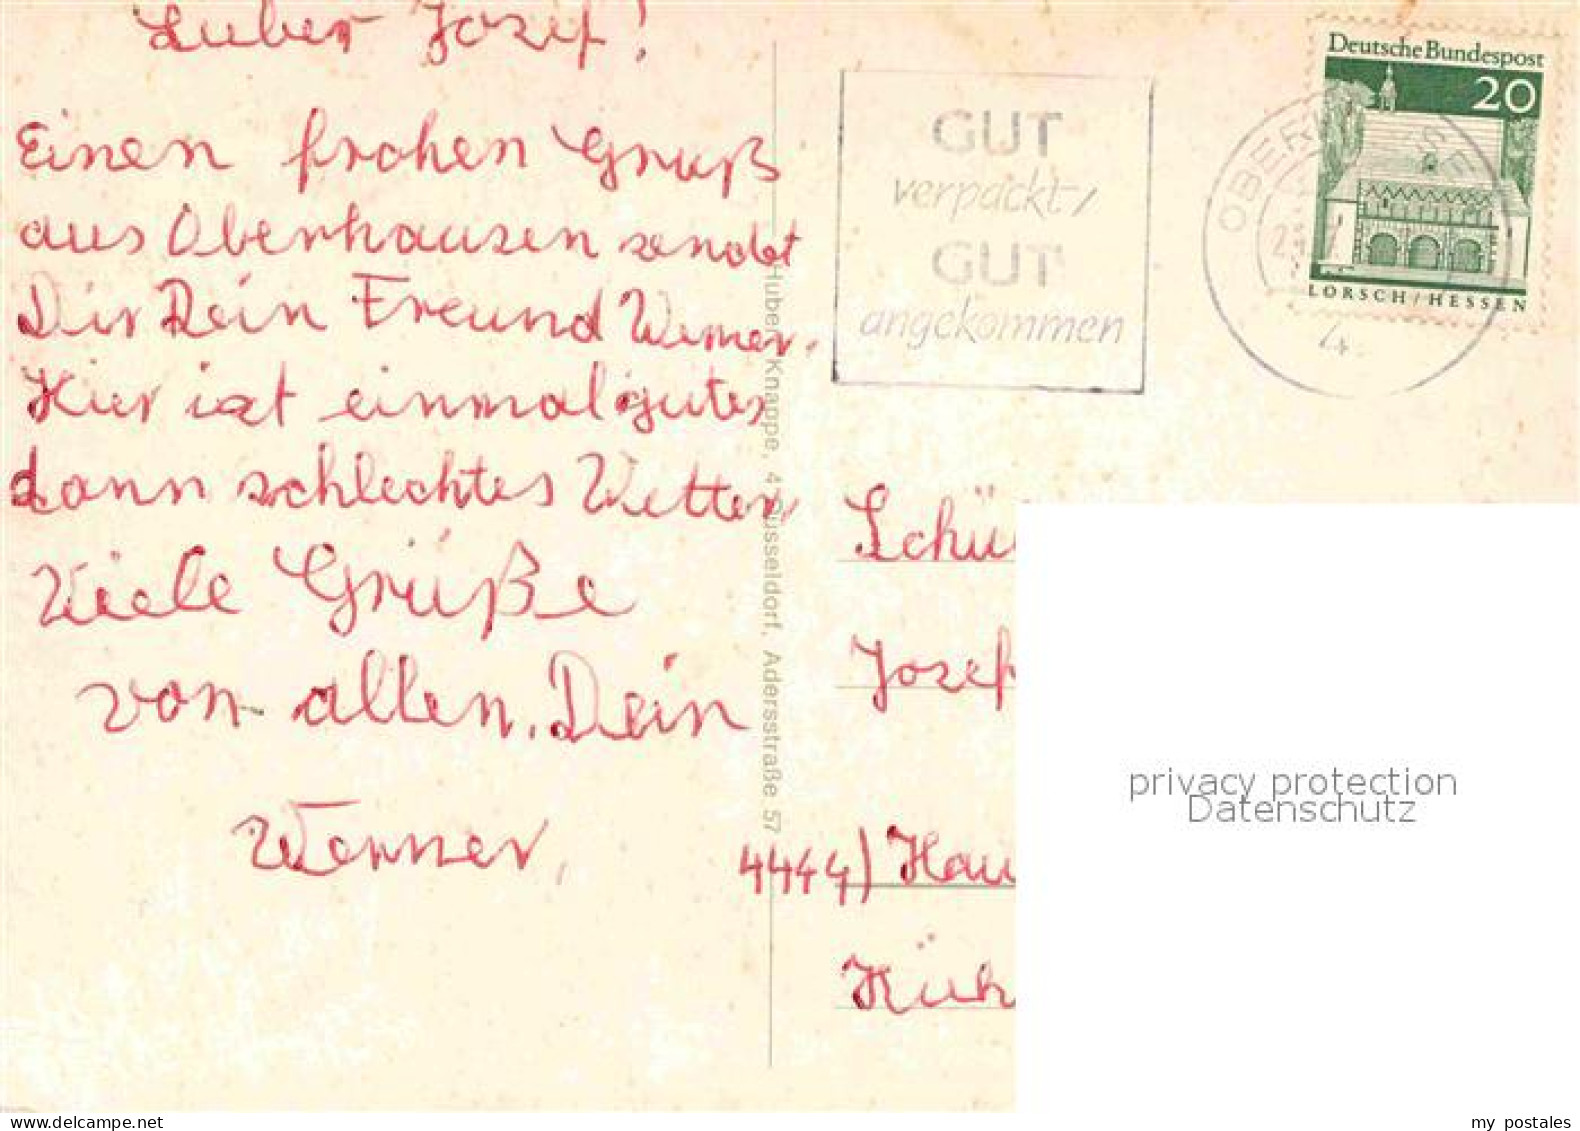 Lieber Josef!
Einen frohen Gruß
aus Oberhausen sendet
Dir Dein Freund Werner.
Hier ist einmal gutes
dann schlechtes Wetter
Viele Grüße
von allen. Dein
Werner,
Hubert Knappe, 4 Düsseldorf, Adersstraße 57
GUT
verpackt/
GUT
angekommen
Deutsche Bundespost
20
LORSCH/HESSEN
Schü
Josef
4444) Hau
privacy protection
Datenschutz
© 123rf.net
my postales